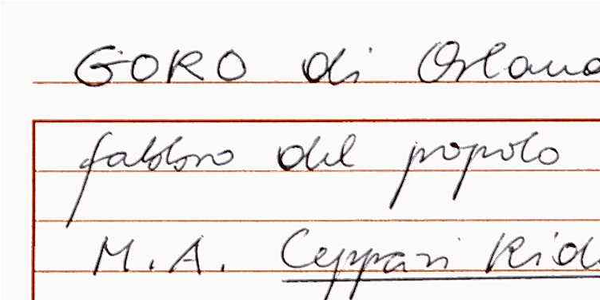 GORO di Orland
fabbro del popolo
M. A. Ceppari Rid